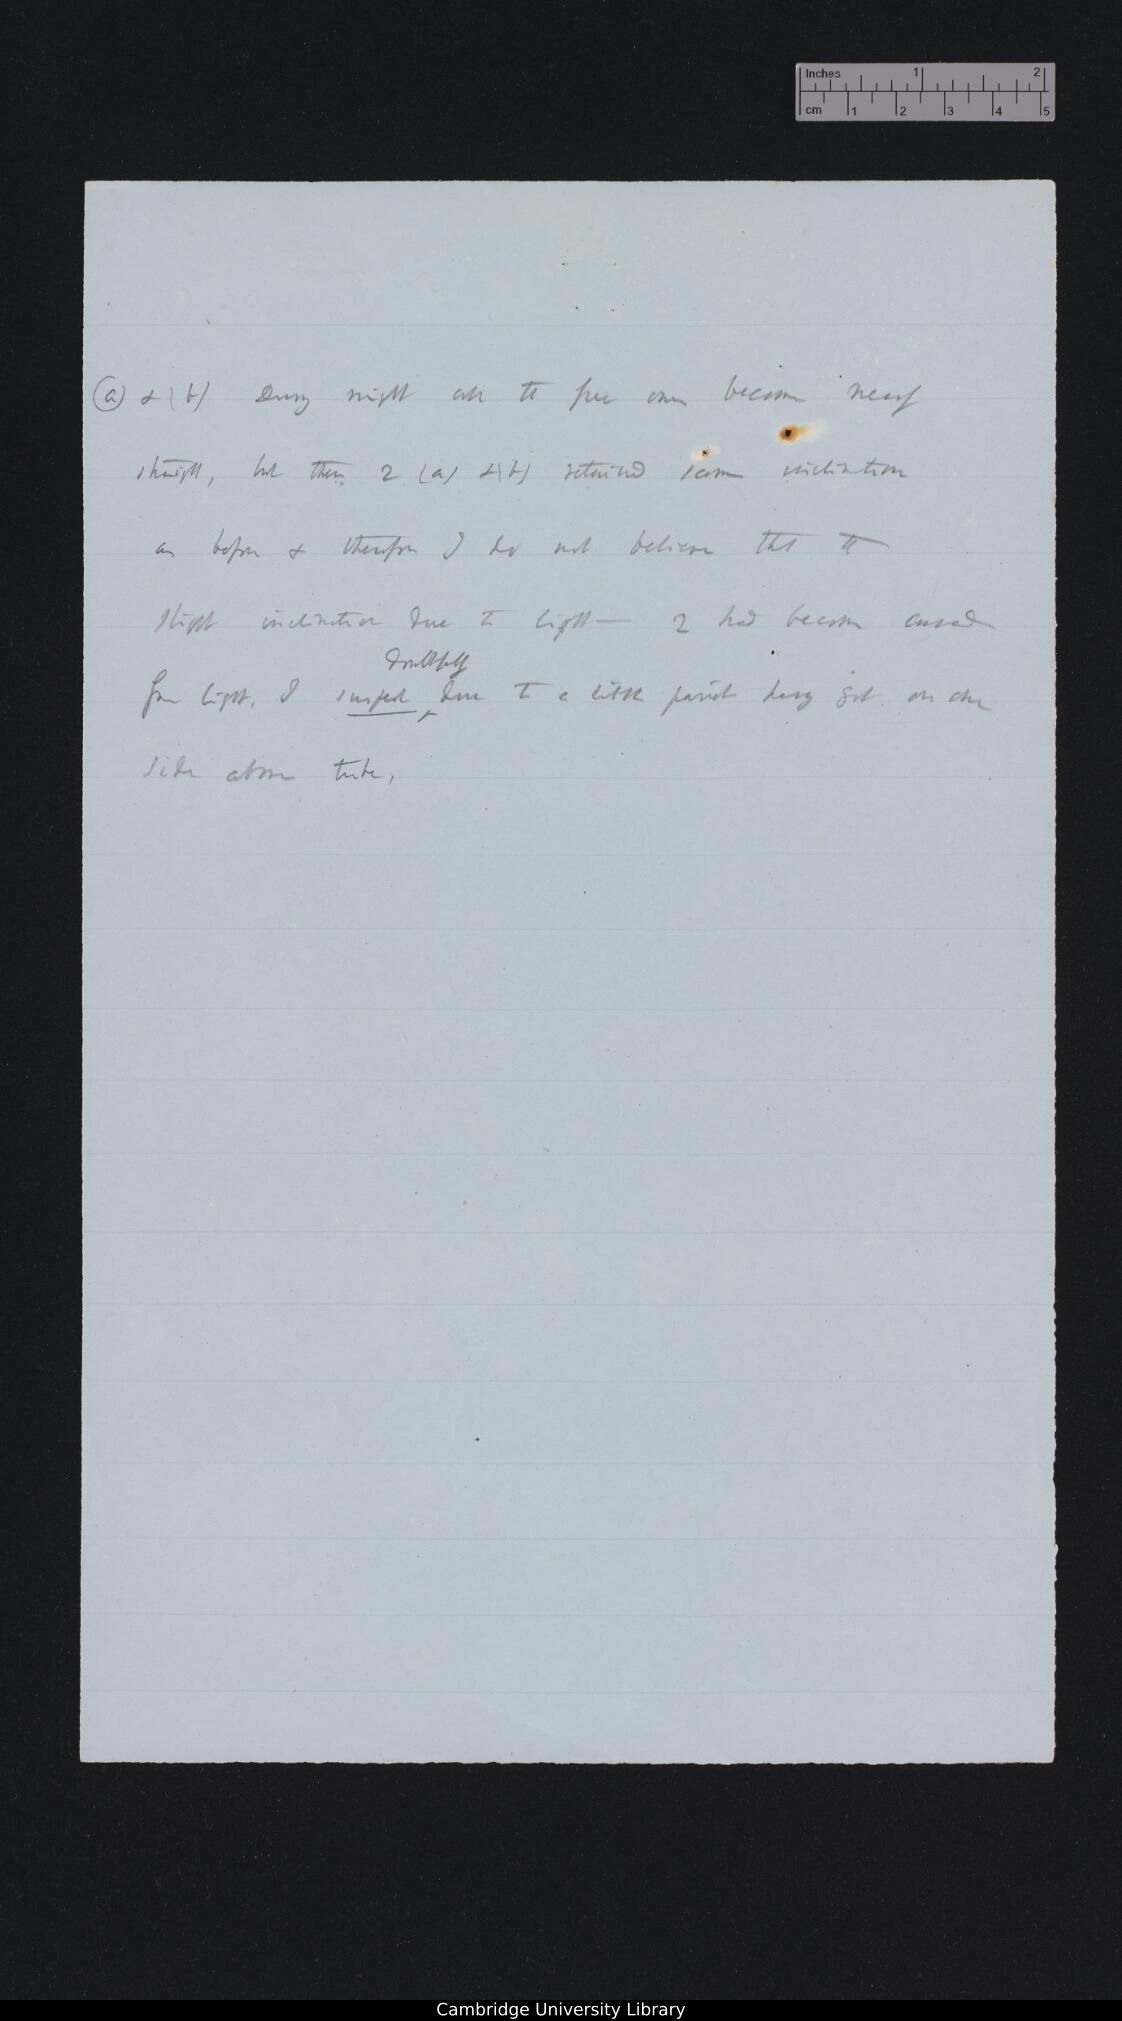 Inches 1 2
cm 1 2 3 4 5
(a) & (b) During night all the free ones became nearly
straight, but these 2 (a) & (b) retained same inclination
as before & therefore I do not believe that the
slight inclination due to light — 2 had become curved
from light, I suspect due to a little having got on one
doubtfully
side above tube,
Cambridge University Library